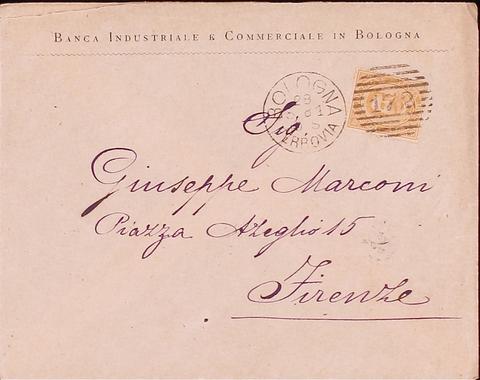 BANCA INDUSTRIALE E COMMERCIALE IN BOLOGNA
BOLOGNA
FERROVIA
Sig.
Giuseppe Marconi
Piazza Azeglio 15
Firenze